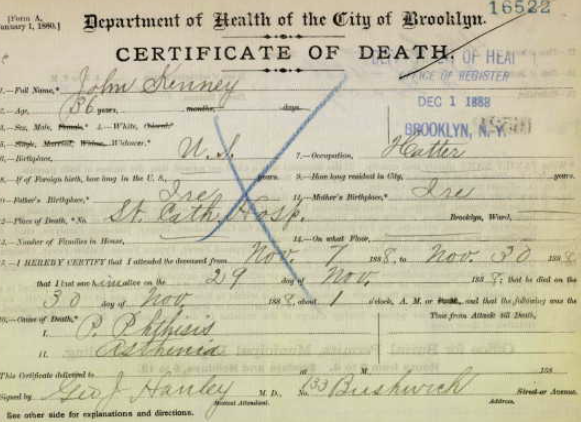 [Form A, January 1, 1880.]
16522
Department of Health of the City of Brooklyn.
CERTIFICATE OF DEATH.
DEPT. OF HEAL
OFFICE OF REGISTER
DEC 1 1888
BROOKLYN, N.Y.
1.—Full Name,* John Kenney
2.—Age, 36 years, months, days.
3.—Sex, Male, Female,* 4.—White, Colored.*
5.—Single, Married, Widow, Widower.*
6.—Birthplace, U. S. 7.—Occupation, Hatter
8.—If of Foreign birth, how long in the U. S., years. 9.—How long resident in City, years.
10.—Father's Birthplace,* Ire 11.—Mother's Birthplace,* Ire
12.—Place of Death, *No. St. Cath Hosp. Brooklyn, Ward,
13.—Number of Families in House, 14.—On what Floor,
15.—I HEREBY CERTIFY that I attended the deceased from Nov. 7 1888, to Nov. 30 1888,
that I last saw him alive on the 29 day of Nov. 1888; that he died on the
30 day of Nov 1888, about 1 o'clock, A. M. or P. M., and that the following was the
16.—Cause of Death,* Time from Attack till Death,
I. P. Phthisis
II. Asthenia
This Certificate delivered to at M. 188
Signed by Geo J Hanley M. D., No. 133 Bushwick Street or Avenue.
Medical Attendant. Address.
See other side for explanations and directions.